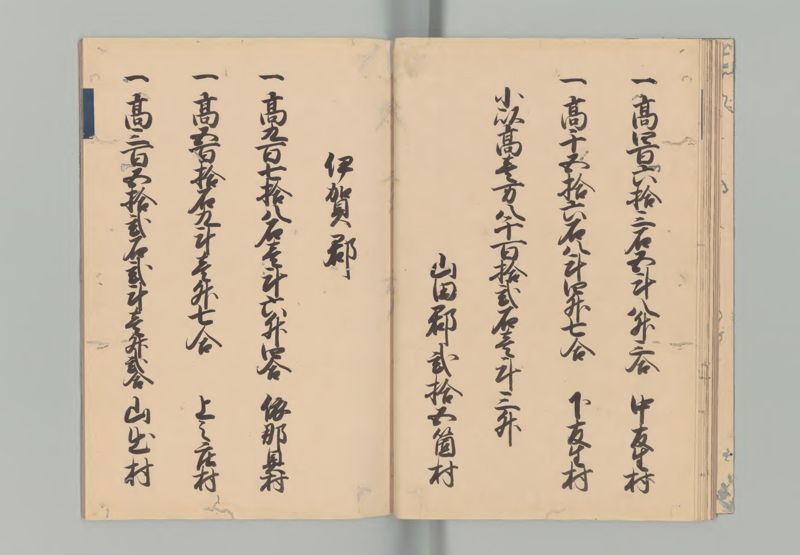 一高四百六拾三石五斗八升二合 中友生村
一高千五拾六石八斗四升七合 下友生村
小以高壱万八千百拾弐石壱斗三升
山田郡弐拾五箇村
伊賀郡
一高九百七拾八石壱斗六升四合 依那具村
一高五百拾石九斗壱升七合 上之庄村
一高三百五拾弐石弐斗壱升弐合 山出村